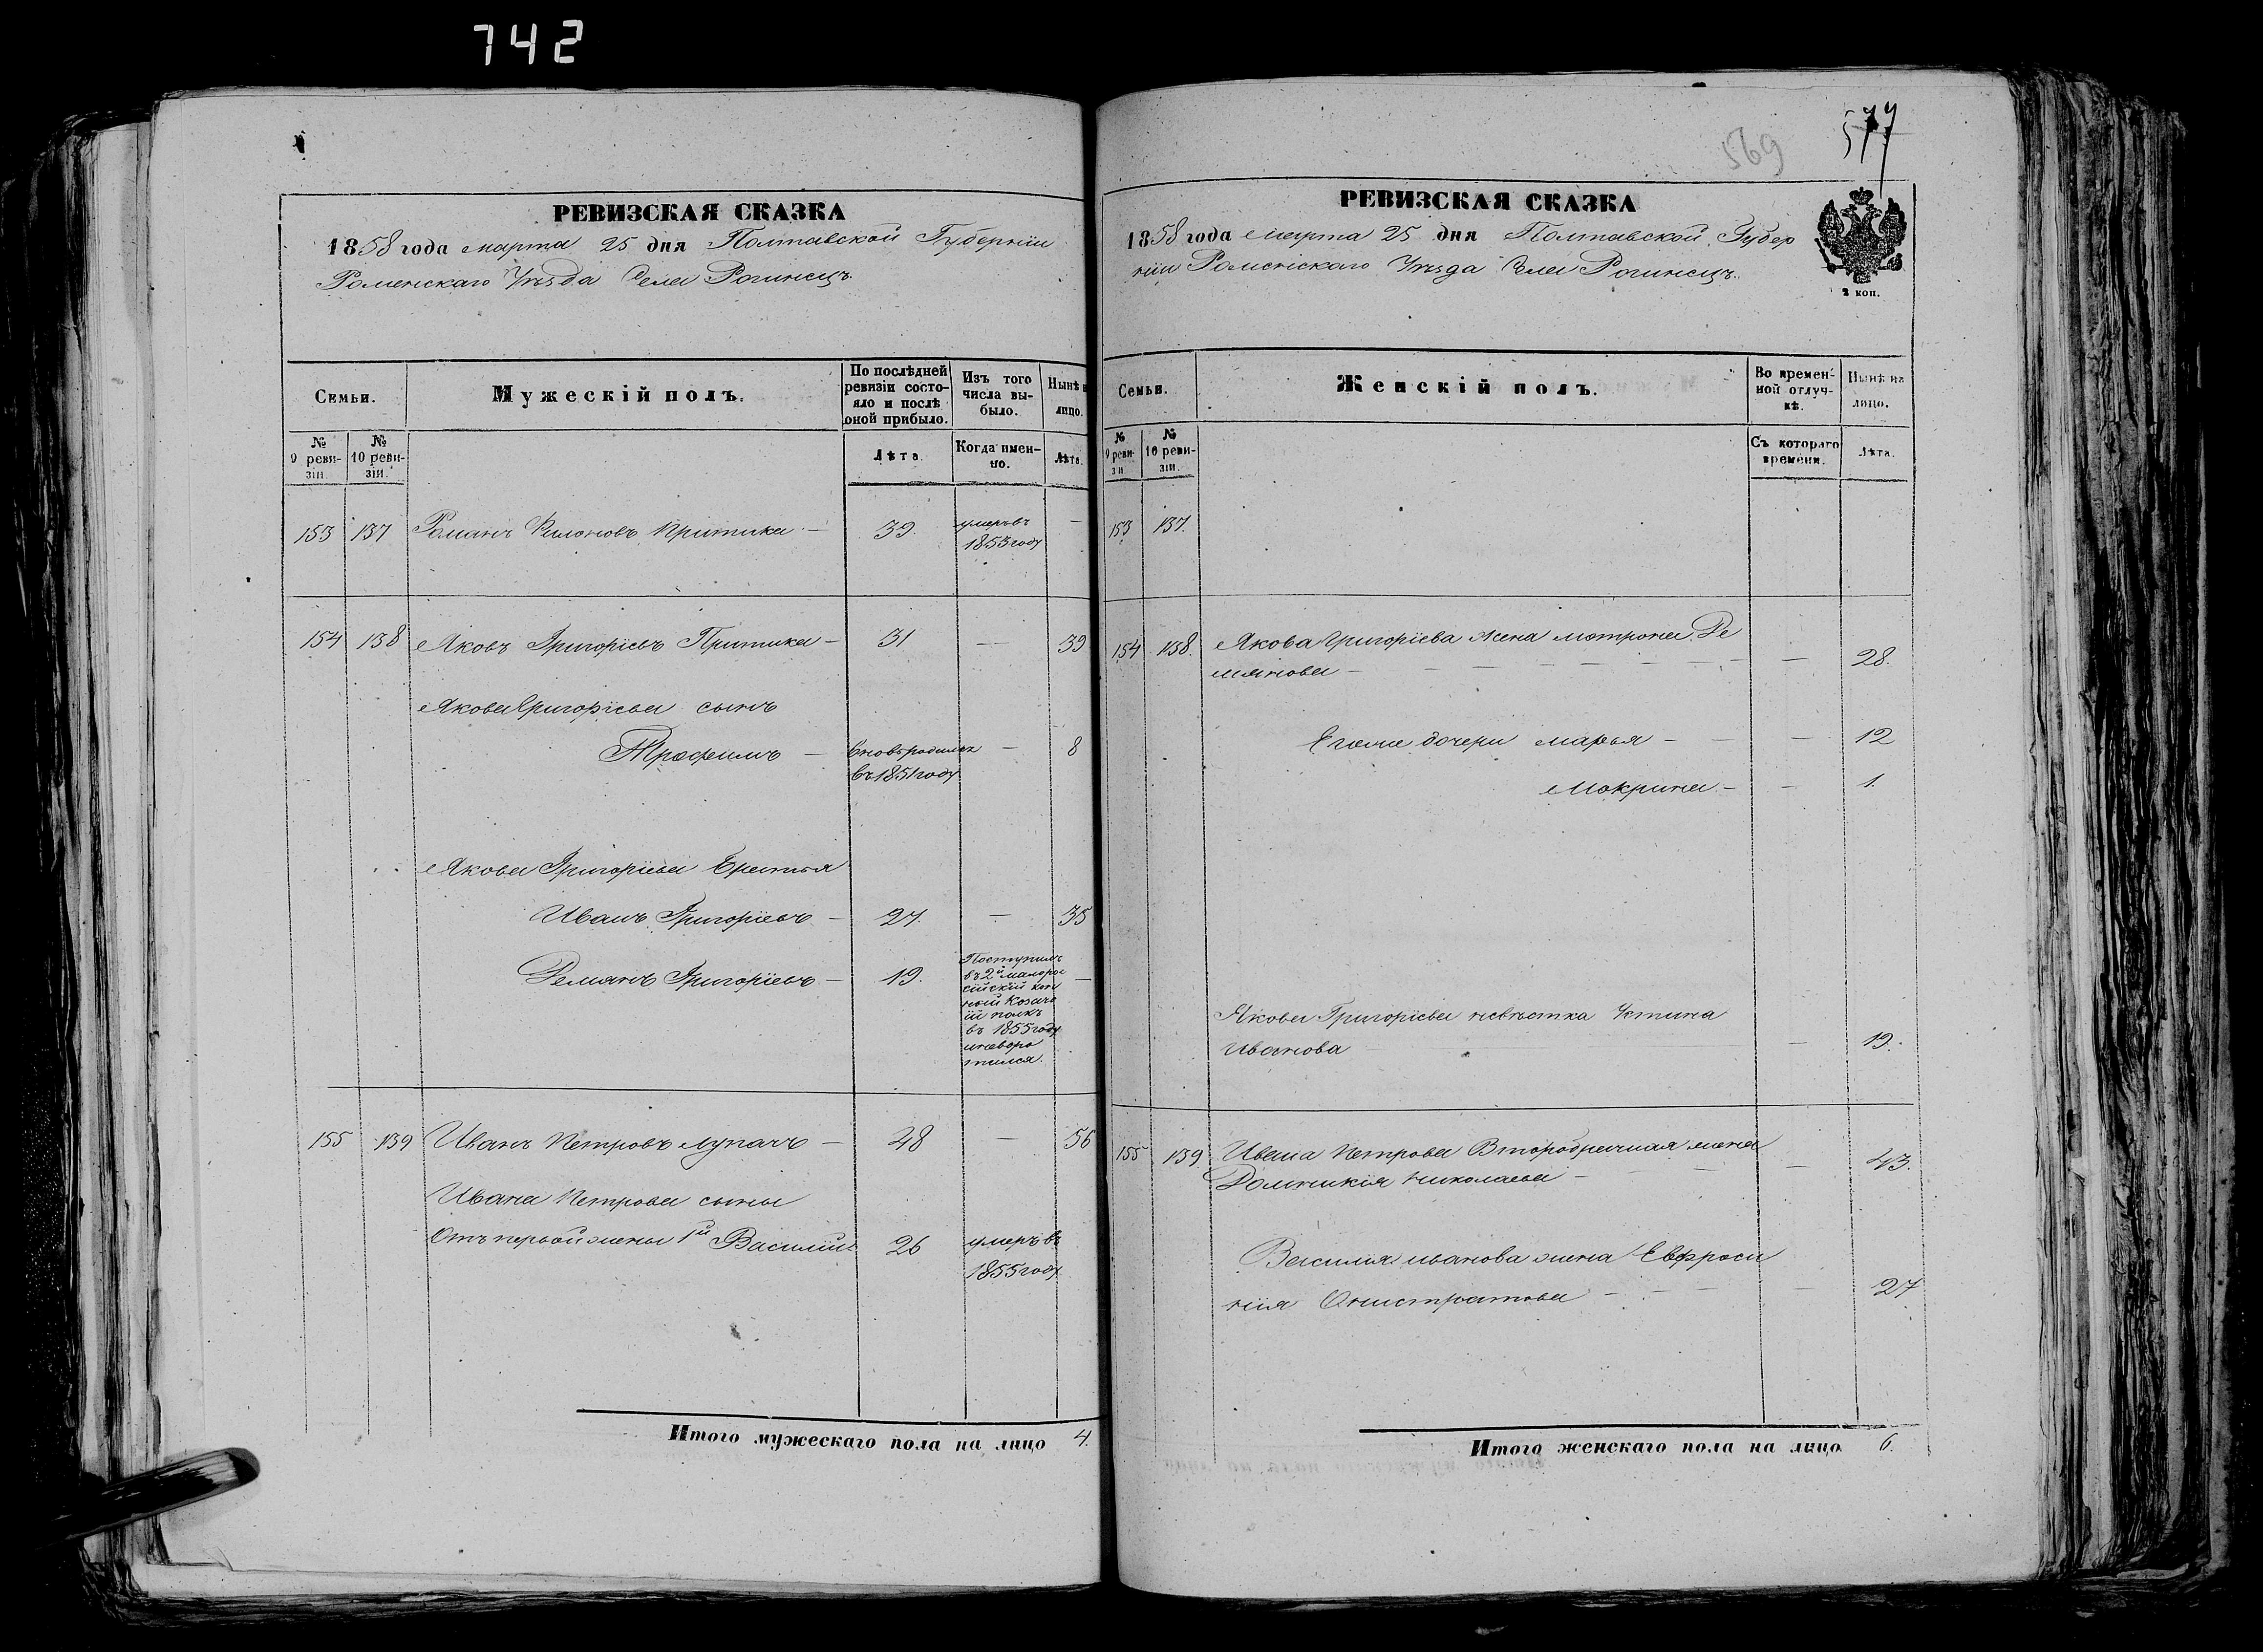 742
РЕВИЗСКАЯ СКАЗКА
1858 года марта 25 дня Полтавской Губернии
Роменскаго Уѣзда Села Рогинецъ
Семьи.
Мужескій полъ.
По послѣдней ревизіи состояло и послѣ оной прибыло.
Изъ того числа выбыло.
Нынѣ на лицо.
№ 9 ревизіи.
№ 10 ревизіи.
Лѣта.
Когда именно.
Лѣта.
153 137 Романъ Филоновъ Притика — 39. умеръ въ 1853 году —
154 138 Яковъ Григоріевъ Притика — 31 — 39
Якова Григоріева сынъ
Трофимъ — вновь родился въ 1851 году — 8
Якова Григоріева братья
Иванъ Григоріевъ — 27. — 35
Демянъ Григоріевъ — 19. Поступилъ
въ 2й малорос
сійскій кон
ный Козачо
ій полкъ
въ 1855 году
и не воро
тился. —
155 139 Иванъ Петровъ Лупачъ — 48 — 56
Ивана Петрова сыны
Отъ первой жены 1й Василій 26 умеръ въ
1855 году
Итого мужескаго пола на лицо 4.
569
577
РЕВИЗСКАЯ СКАЗКА
1858 года Марта 25 дня Полтавской Губер
ніи Роменскаго Уѣзда Села Рогинецъ.
2 коп.
Семьи.
Женскій полъ.
Во временной отлучкѣ.
Нынѣ на лицо.
№ 9 ревизіи
№ 10 ревизіи.
Съ котораго времени.
Лѣта.
153 137.
154 138. Якова Григоріева жена Мотрона Де
мянова — — 28.
Его же дочери Марья — — 12
Мокрина — — 1.
Якова Григоріева невѣстка Устина
Иванова — 19.
155 139 Ивана Петрова Второбрачная жена
Домникія Николаева — — 43.
Василія Иванова жена Евфроси
нія Онистратова — — 27
Итого женскаго пола на лицо 6.